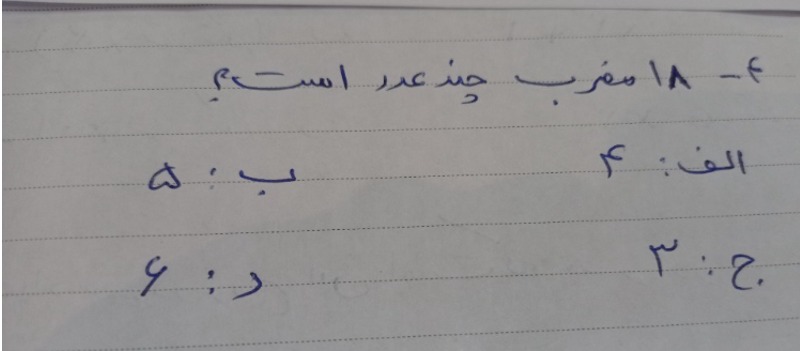 ۴- ۱۸ مضرب چند عدد است؟
الف: ۴ ب: ۵
ج: ۳ د: ۶